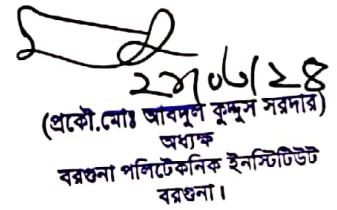 (প্রকৌ. মোঃ আবদুল কুদ্দুস সরদার)
অধ্যক্ষ
বরগুনা পলিটেকনিক ইনস্টিটিউট
বরগুনা।